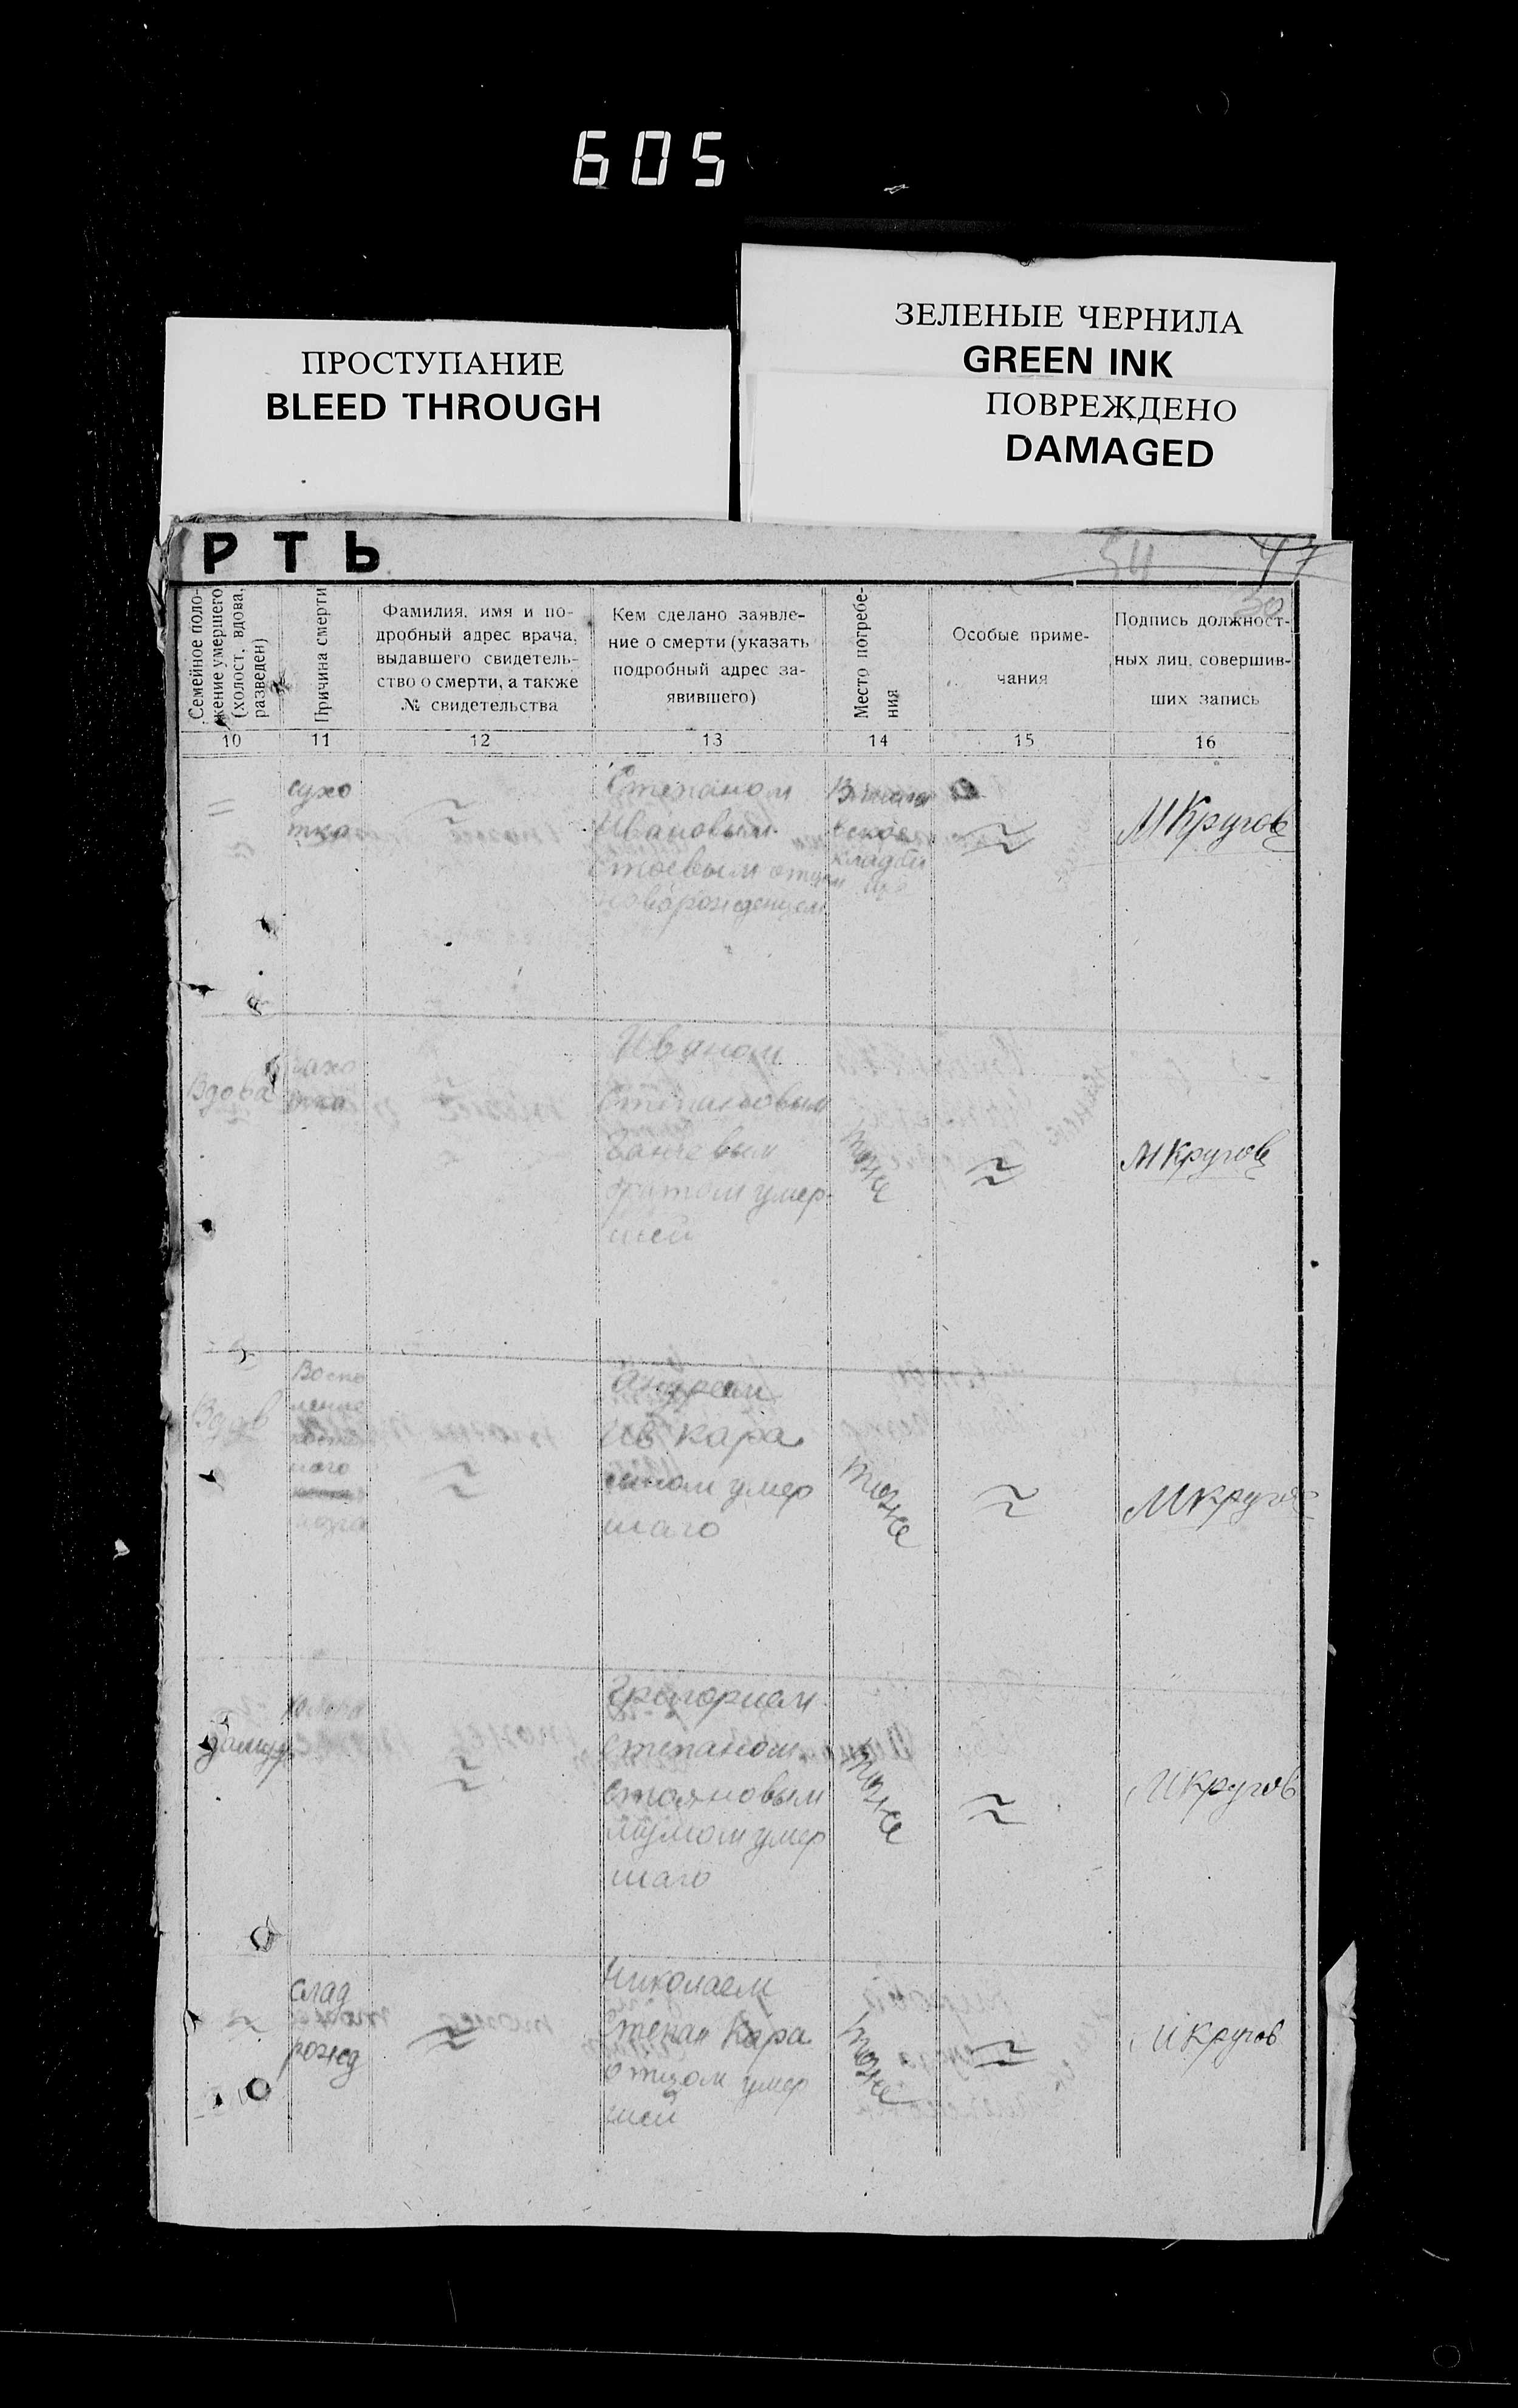 605
ПРОСТУПАНИЕ
BLEED THROUGH
ЗЕЛЕНЫЕ ЧЕРНИЛА
GREEN INK
ПОВРЕЖДЕНО
DAMAGED
РТЬ
54 47
50
Семейное поло-
жение умершего
(холост, вдова,
разведен)
Причина смерти
Фамилия, имя и по-
дробный адрес врача,
выдавшего свидетель-
ство о смерти, а также
№ свидетельства
Кем сделано заявле-
ние о смерти (указать
подробный адрес за-
явившего)
Место погребе-
ния
Особые приме-
чания
Подпись должност-
ных лиц, совершив-
ших запись
10 11 12 13 14 15 16
сухо
тка
Степаном
Ивановым
Стоевым отцом
новорожденцем
ское
кладби
ще
МКругов
Вдова
Иваном
Степановым
Ганчевым
братом умер-
шей
тоже
МКругов
Вдов
Воспа
ление
Андреем
Ив Кара
сином умер
шаго
тоже
МКругов
Замуж
Григорием
Степаном
Стояновым
мужом умер
шаго
тоже
МКругов
слад
рожед
Николаем
Степан Кара
отцом умер
шей
тоже
МКругов